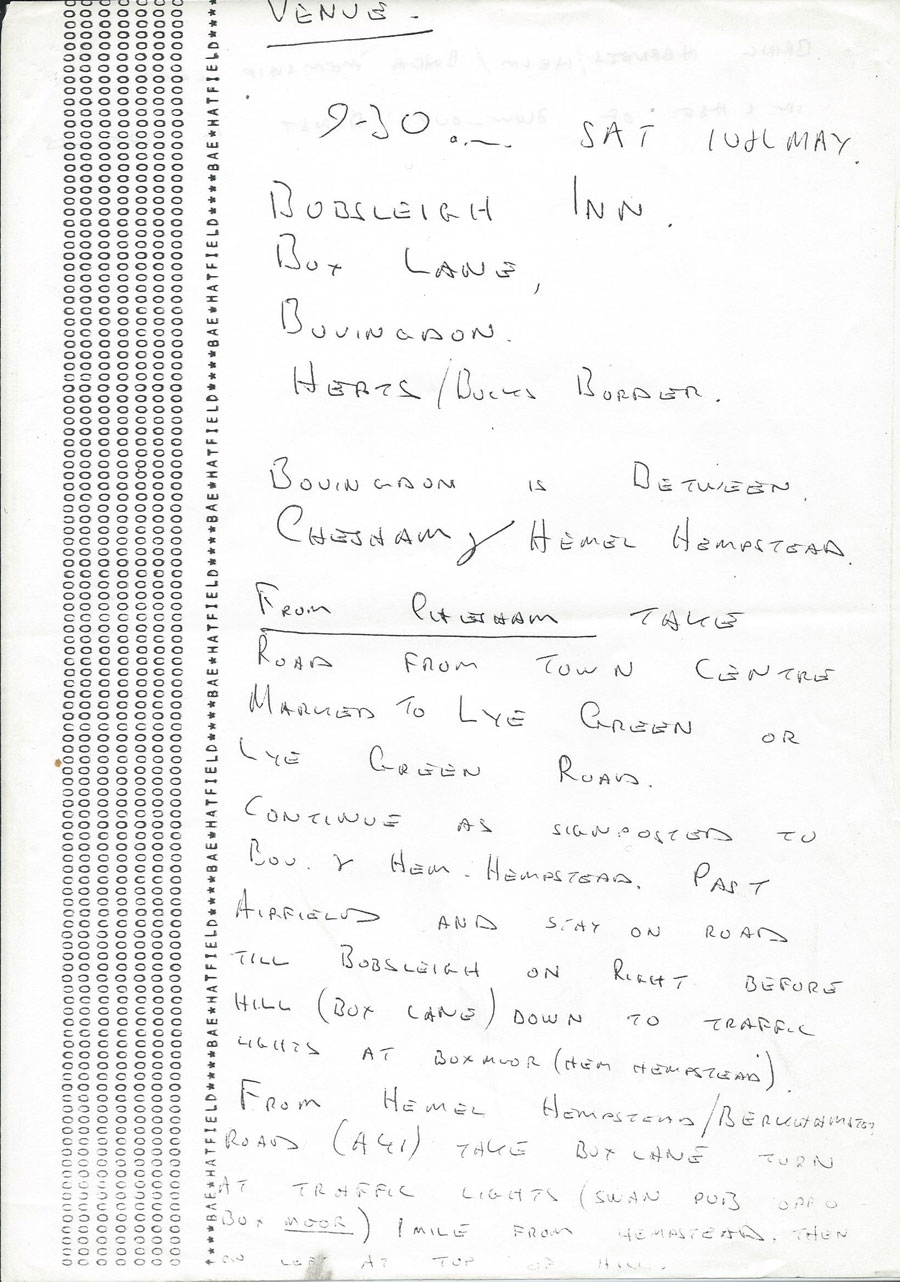 VENUE.
9-30 SAT 10th MAY.
BOBSLEIGH INN.
BOX LANE,
BOVINGDON.
HERTS/BUCKS BORDER.
BOVINGDON IS BETWEEN
CHESHAM & HEMEL HEMPSTEAD
FROM CHESHAM TAKE
ROAD FROM TOWN CENTRE
MARKED TO LYE GREEN OR
LYE GREEN ROAD.
CONTINUE AS SIGNPOSTED TO
BOV. & HEM. HEMPSTEAD. PAST
AIRFIELD AND STAY ON ROAD
TILL BOBSLEIGH ON RIGHT BEFORE
HILL (BOX LANE) DOWN TO TRAFFIC
LIGHTS AT BOXMOOR (HEM HEMPSTEAD).
FROM HEMEL HEMPSTEAD/BERKHAMSTED
ROAD (A41) TAKE BOX LANE TURN
AT TRAFFIC LIGHTS (SWAN PUB OPPO
BOX MOOR) 1 MILE FROM HEMPSTEAD. THEN
ON LEFT AT TOP OF HILL.
****BAE*HATFIELD****BAE*HATFIELD****BAE*HATFIELD****BAE*HATFIELD****BAE*HATFIELD****BAE*HATFIELD****BAE*HATFIELD****BAE*HATFIELD***